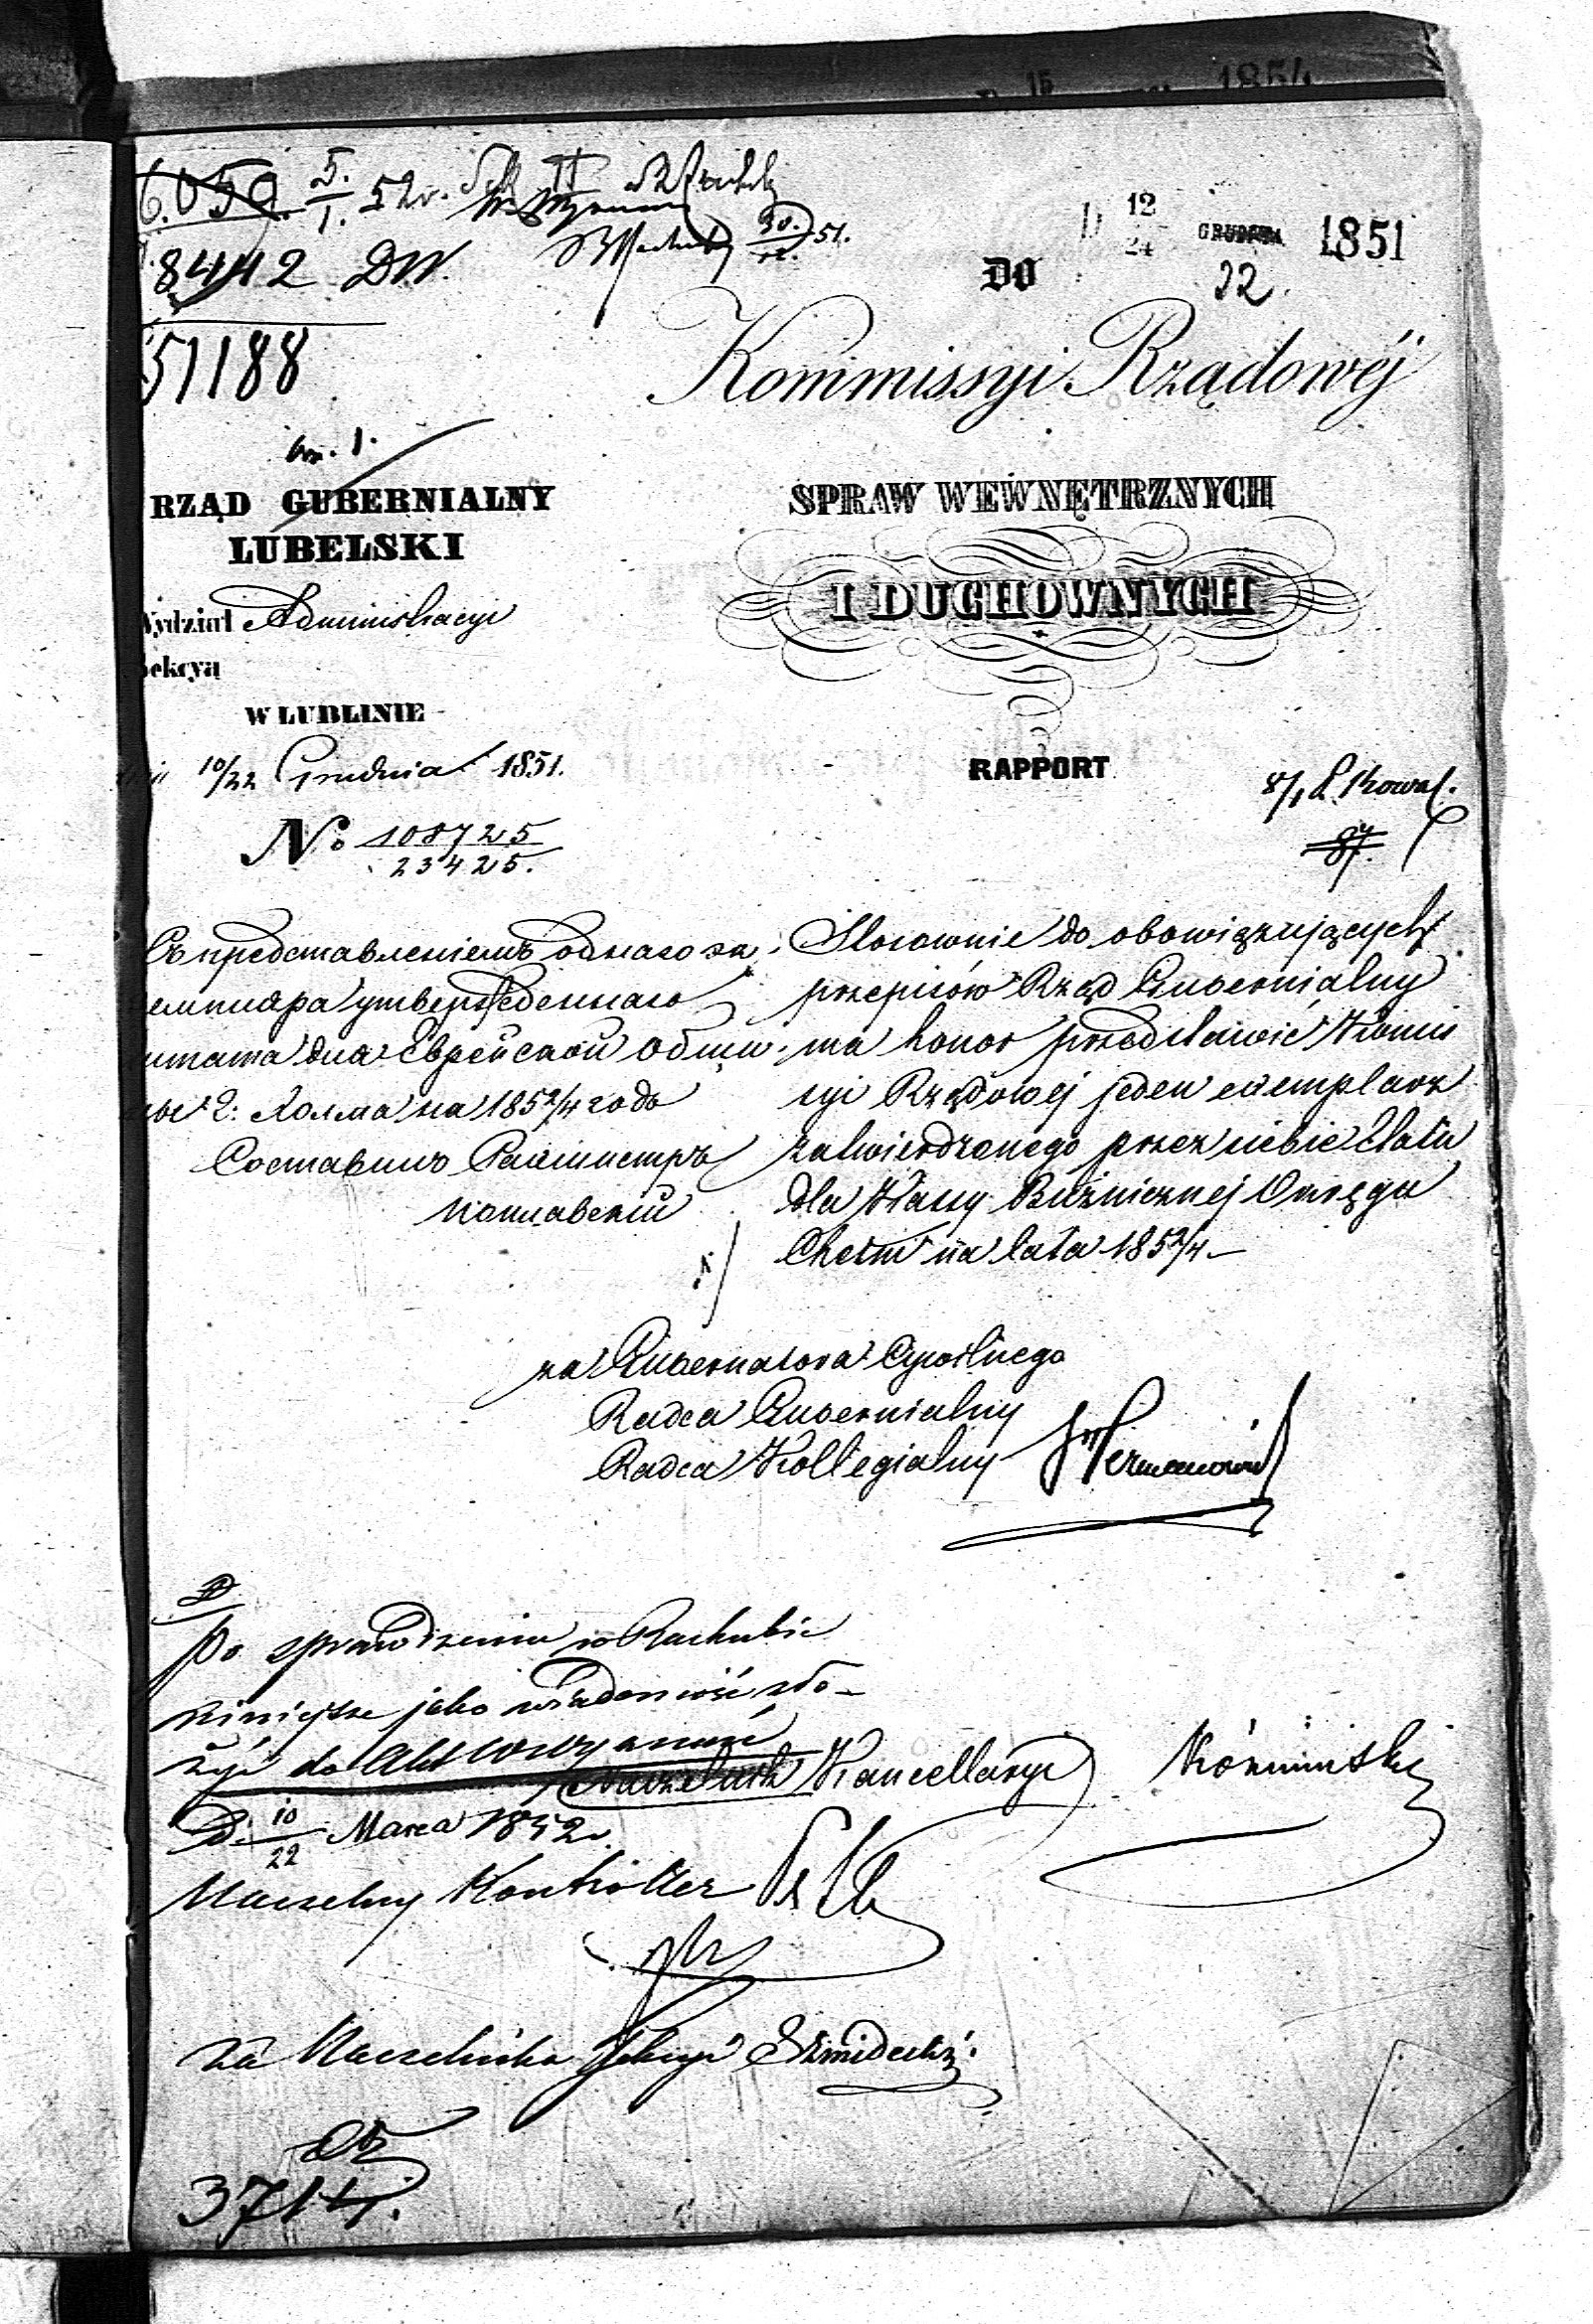 6.050. 5./1. 52r.
30./12. 51.
D 12/24 GRUDNIA 1851
22.
8442 DW.
51188
DO
Kommissyi Rządowéj
RZĄD GUBERNIALNY
LUBELSKI
Wydział Administracyi
Sekcya
W LUBLINIE
10/22 Grudnia 1851.
No 108725
23425.
SPRAW WEWNĘTRZNYCH
I DUCHOWNYCH
RAPPORT
8/1 Kowal.
Съ представленіемъ однаго эк
земпляра утвержденнаго
штата для Еврейской Общи
ны г: Холма на 1852/4 годъ
Составилъ Регистръ
Stosownie do obowiązujących
przepisów Rząd Gubernialny
ma honor przedstawić Kommis
syi Rządowéj jeden exemplarz
zatwierdzonego przez siebie Etatu
dla Kassy Bużnicznej Okręgu
Chełm na lata 1852/4 –
za Gubernatora Cywilnego
Radca Gubernialny
Radca Kollegialny Hermanowicz
Po sprawdzeniu w Rachubie
niniejsze jako wiadomość zło-
żyć do Akt
Naczelnik Kancellaryi
D. 10/22 Marca 1852r.
Naczelny Kontroller
za Naczelnika Sekcyi
3714.